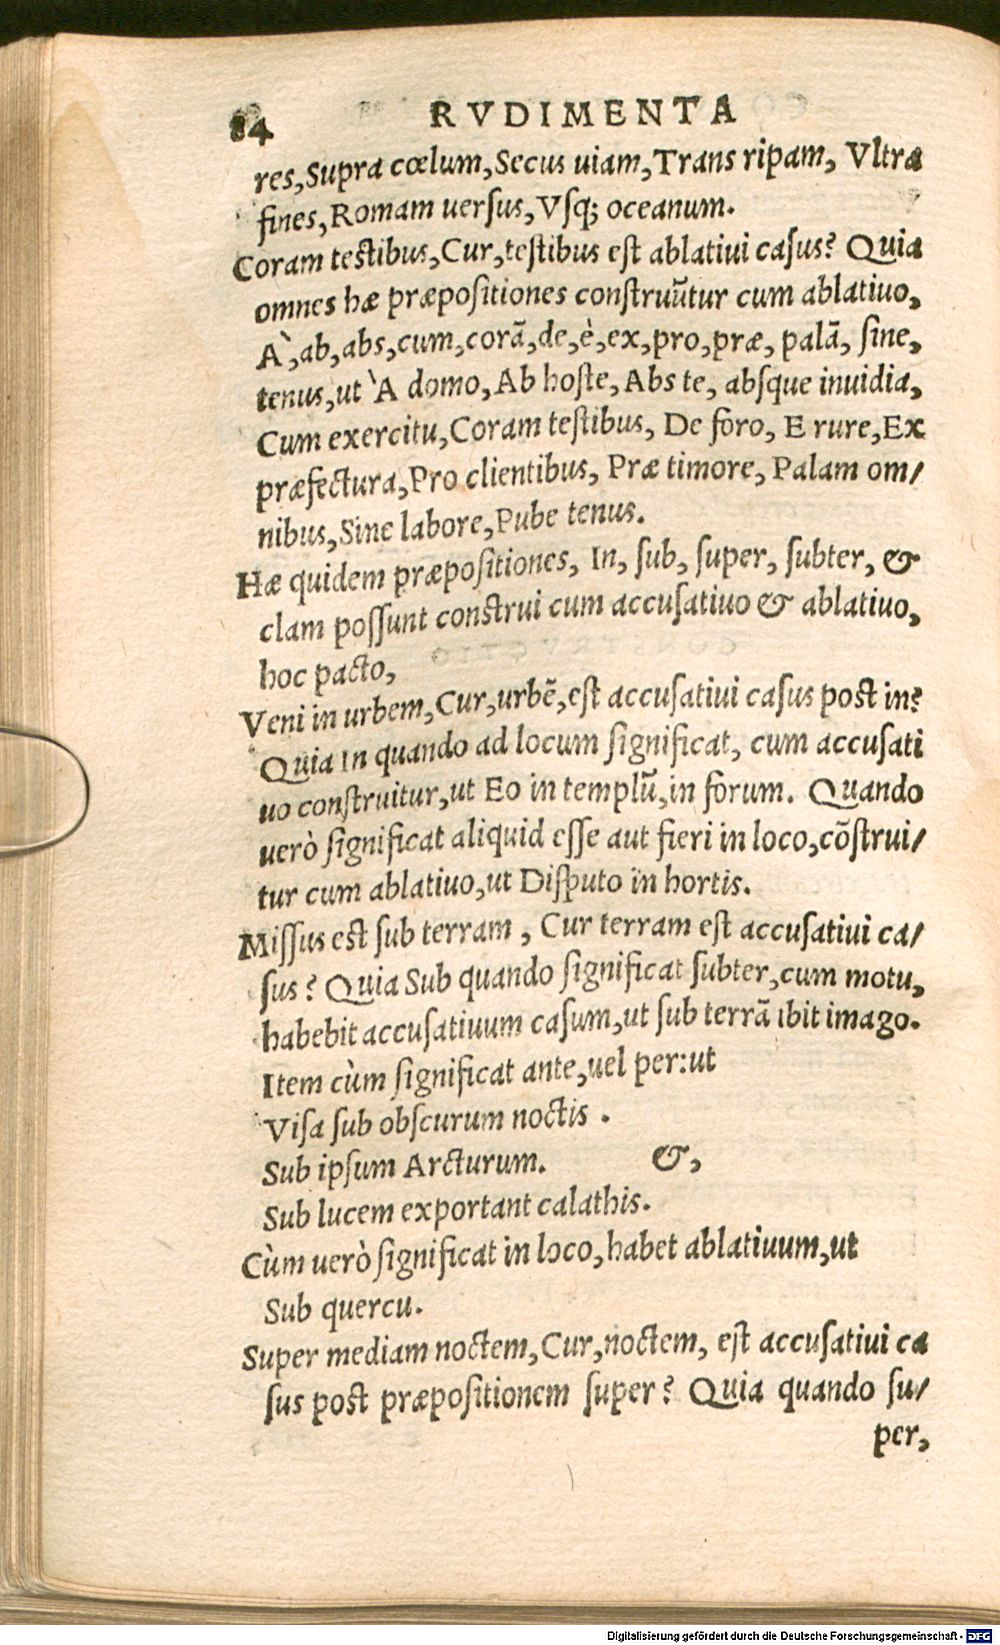 84 RVDIMENTA
res, Supra cœlum, Secus uiam, Trans ripam, Vltra
fines, Romam uerſus, Vſq; oceanum.
Coram teſtibus, Cur, teſtibus eſt ablatiui caſus? Quia
omnes hæ præpoſitiones conſtruũtur cum ablatiuo,
À, ab, abs, cum, corã, de, è, ex, pro, præ, palã, ſine,
tenus, ut À domo, Ab hoſte, Abs te, abſque inuidia,
Cum exercitu, Coram teſtibus, De foro, E rure, Ex
præfectura, Pro clientibus, Præ timore, Palam om/
nibus, Sine labore, Pube tenus.
Hæ quidem præpoſitiones, In, ſub, ſuper, ſubter, &
clam poſſunt conſtrui cum accuſatiuo & ablatiuo,
hoc pacto,
Veni in urbem, Cur, urbẽ, eſt accuſatiui caſus poſt in?
Quia in quando ad locum ſignificat, cum accuſati
uo conſtruitur, ut Eo in templũ, in forum. Quando
uerò ſignificat aliquid eſſe aut fieri in loco, cõſtrui/
tur cum ablatiuo, ut Diſputo in hortis.
Miſſus eſt ſub terram, Cur terram eſt accuſatiui ca/
ſus? Quia Sub quando ſignificat ſubter, cum motu,
habebit accuſatiuum caſum, ut ſub terrã ibit imago.
Item cùm ſignificat ante, uel per: ut
Viſa ſub obſcurum noctis.
Sub ipſum Arcturum. &,
Sub lucem exportant calathis.
Cùm uerò ſignificat in loco, habet ablatiuum, ut
Sub quercu.
Super mediam noctem, Cur, noctem, eſt accuſatiui ca
ſus poſt præpoſitionem ſuper? Quia quando ſu/
per,
Digitalisierung gefördert durch die Deutsche Forschungsgemeinschaft - DFG